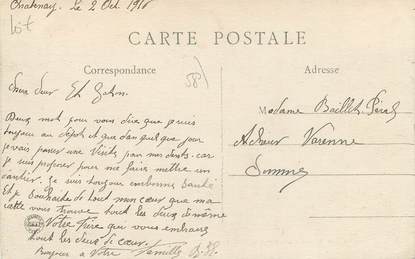 Chatenay. Le 2 Oct. 191
lot
CARTE POSTALE
Correspondance
Adresse
58
Chere Sœur Et
Deux mot pour vous dire que je suis
toujour au depot et que dan quelque jour
je vais passer une Visite par mes dents. car
je suis proposer pour me faire mettre un
ratelier. je suis toujour en bonne Santé
Et je Souhaite de tout mon cœur que ma
carte vous trouve tout les deux de même
Votre Frere que vous embrasse
tout les deux de cœur.
Bonjour a Votre Famille
Madame Baillet
Varenne
Somme